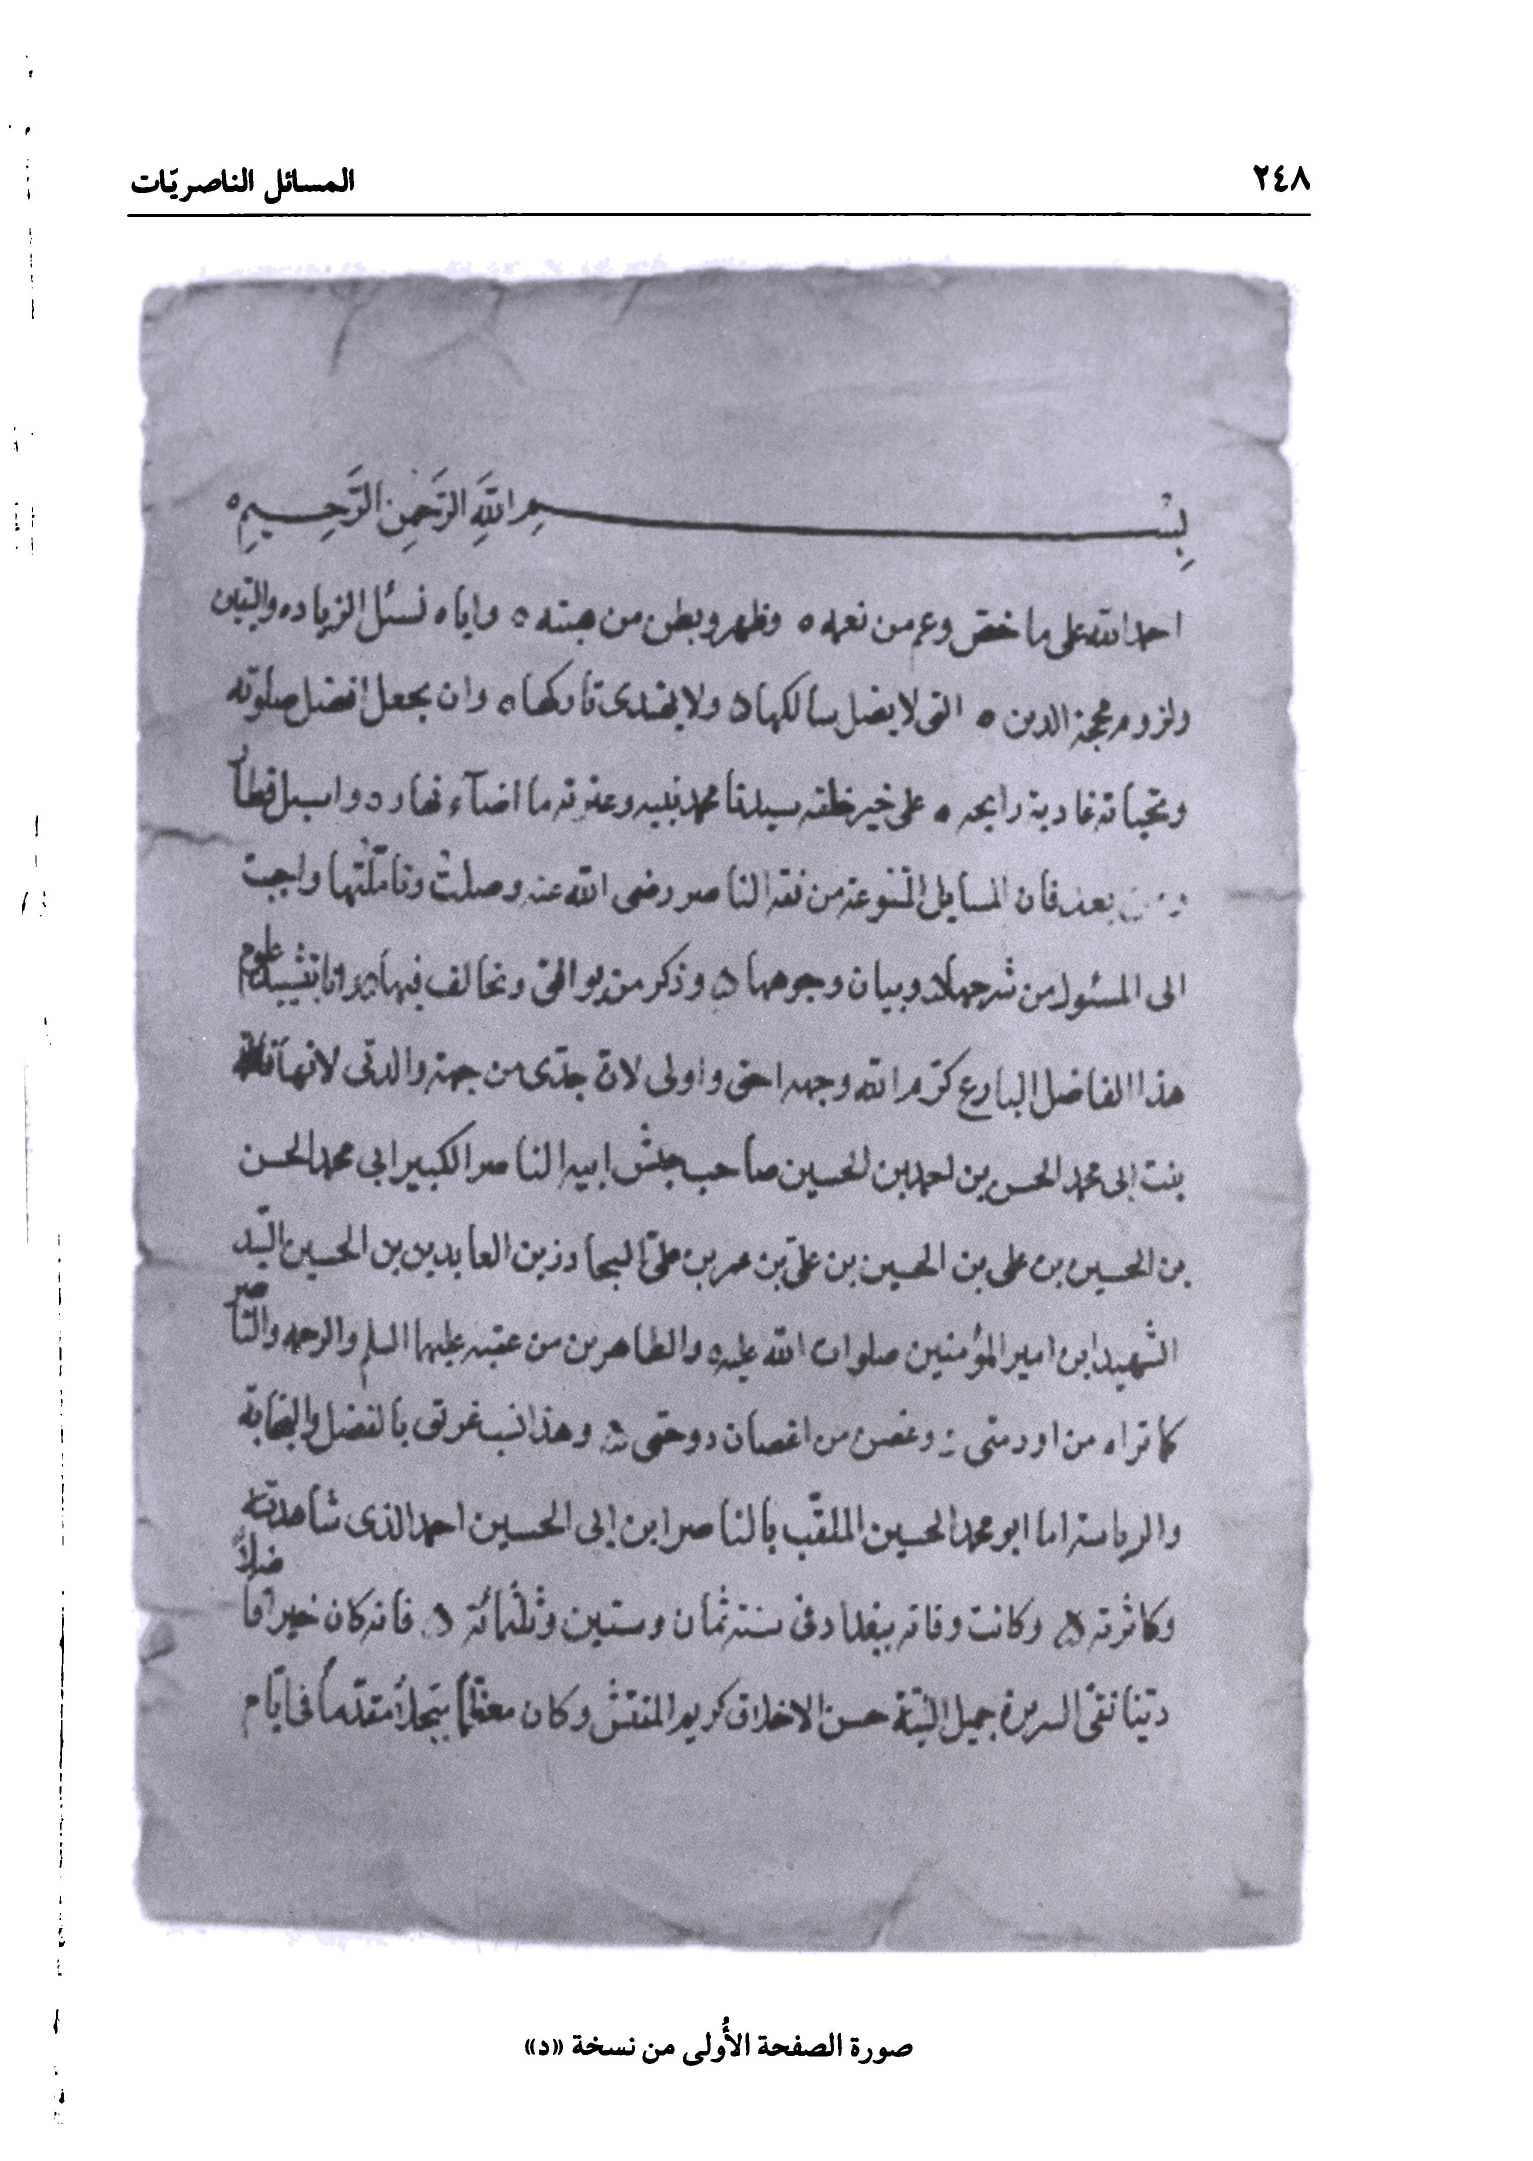 ٢٤٨
المسائل الناصريّات
بِسْمِ اللَّهِ الرَّحْمنِ الرَّحِيمِ ٥
احمد الله على ما خصّ وعم من نعمه ٥ وظهر وبطن من هبته ٥ واياه نسئل الزياده والتبين
ولزوم محجة الدين ٥ التى لا يضل سالكها ٥ ولا يهتدى تاركها ٥ وان يجعل افضل صلوته
وتحياته غادية رايحه ٥ على خير خلقه سيدنا محمد نبيه وعترته ما اضآء نهار ٥ واسبل قطار
بعد فان المسايل المنتزعة من فقه الناصر رضى الله عنه وصلتْ وتأمّلتُها واجبت
الى المسئول من شرحها ٥ وبيان وجوهها ٥ وذكر من يوافق ونخالف فيها ٥ وانا بتشييد علوم
هذا الفاضل البارع كرّم الله وجهه احق واولى لانّه جدّى من جهة والدتى لانها
بنت ابى محمد الحسن بن احمد بن الحسين صاحب جيش ابيه الناصر الكبير ابى محمد الحسن
بن الحسين بن على بن الحسين بن علىّ بن عمر بن علىّ السجاد زين العابدين بن الحسين السّيد
الشهيد ابن امير المؤمنين صلوات الله عليه والطاهرين من عقبه عليهما السلم والرحمه والنّاصر
كما تراه من ارومتى ٥ وغصن من اغصان دوحتى ٥ وهذا نسب عريق بالفضل والنجابة
والرياسة اما ابو محمد الحسين الملقّب بالناصر ابن ابى الحسين احمد الذى شاهدته
وكاثرته ٥ وكانت وفاته ببغداد فى سنة ثمان وستين وثلثمائة ٥ فانه كان خيرا فاضلاً
ديّنا نقىّ السريرة جميل النيّة حسن الاخلاق كريم المفتش وكان معظّماً مبجلاً مقدّماً فى ايّام
صورة الصفحة الأُولى من نسخة «د»